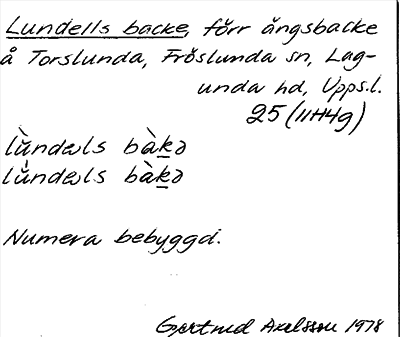 Lundells backe, förr ängsbacke
å Torslunda, Fröslunda sn, Lag-
unda hd, Upps.l.
25 (11H4g)
lùndæls bàkə
lùndæls bàkə
Numera bebyggd.
Gertrud Axelsson 1978